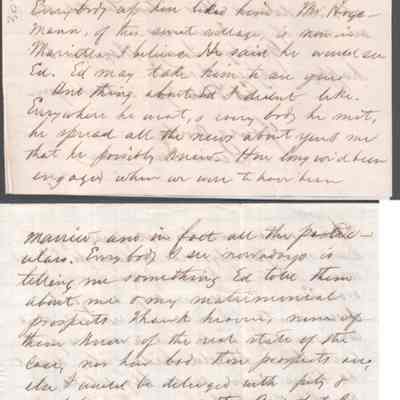 Everybody up here likes him. Mr. Hoge-
mann, of this sweet village, is now in
Marietta, I believe. He said he would see
Ed. Ed may take him to see you.
One thing about Ed I dident like.
Everywhere he went, & every body he met,
he spread all the news about you & me
that he possibly knew. How long we'd been
engaged when we were to have been
married, and in fact all the partic-
ulars. Every body I see nowadays is
telling me something Ed told them
about me & my matrimonial
prospects. Thank heaven, none of
them know of the real state of the
case, nor how bad them prospects are,
else I would be deluged with pity &